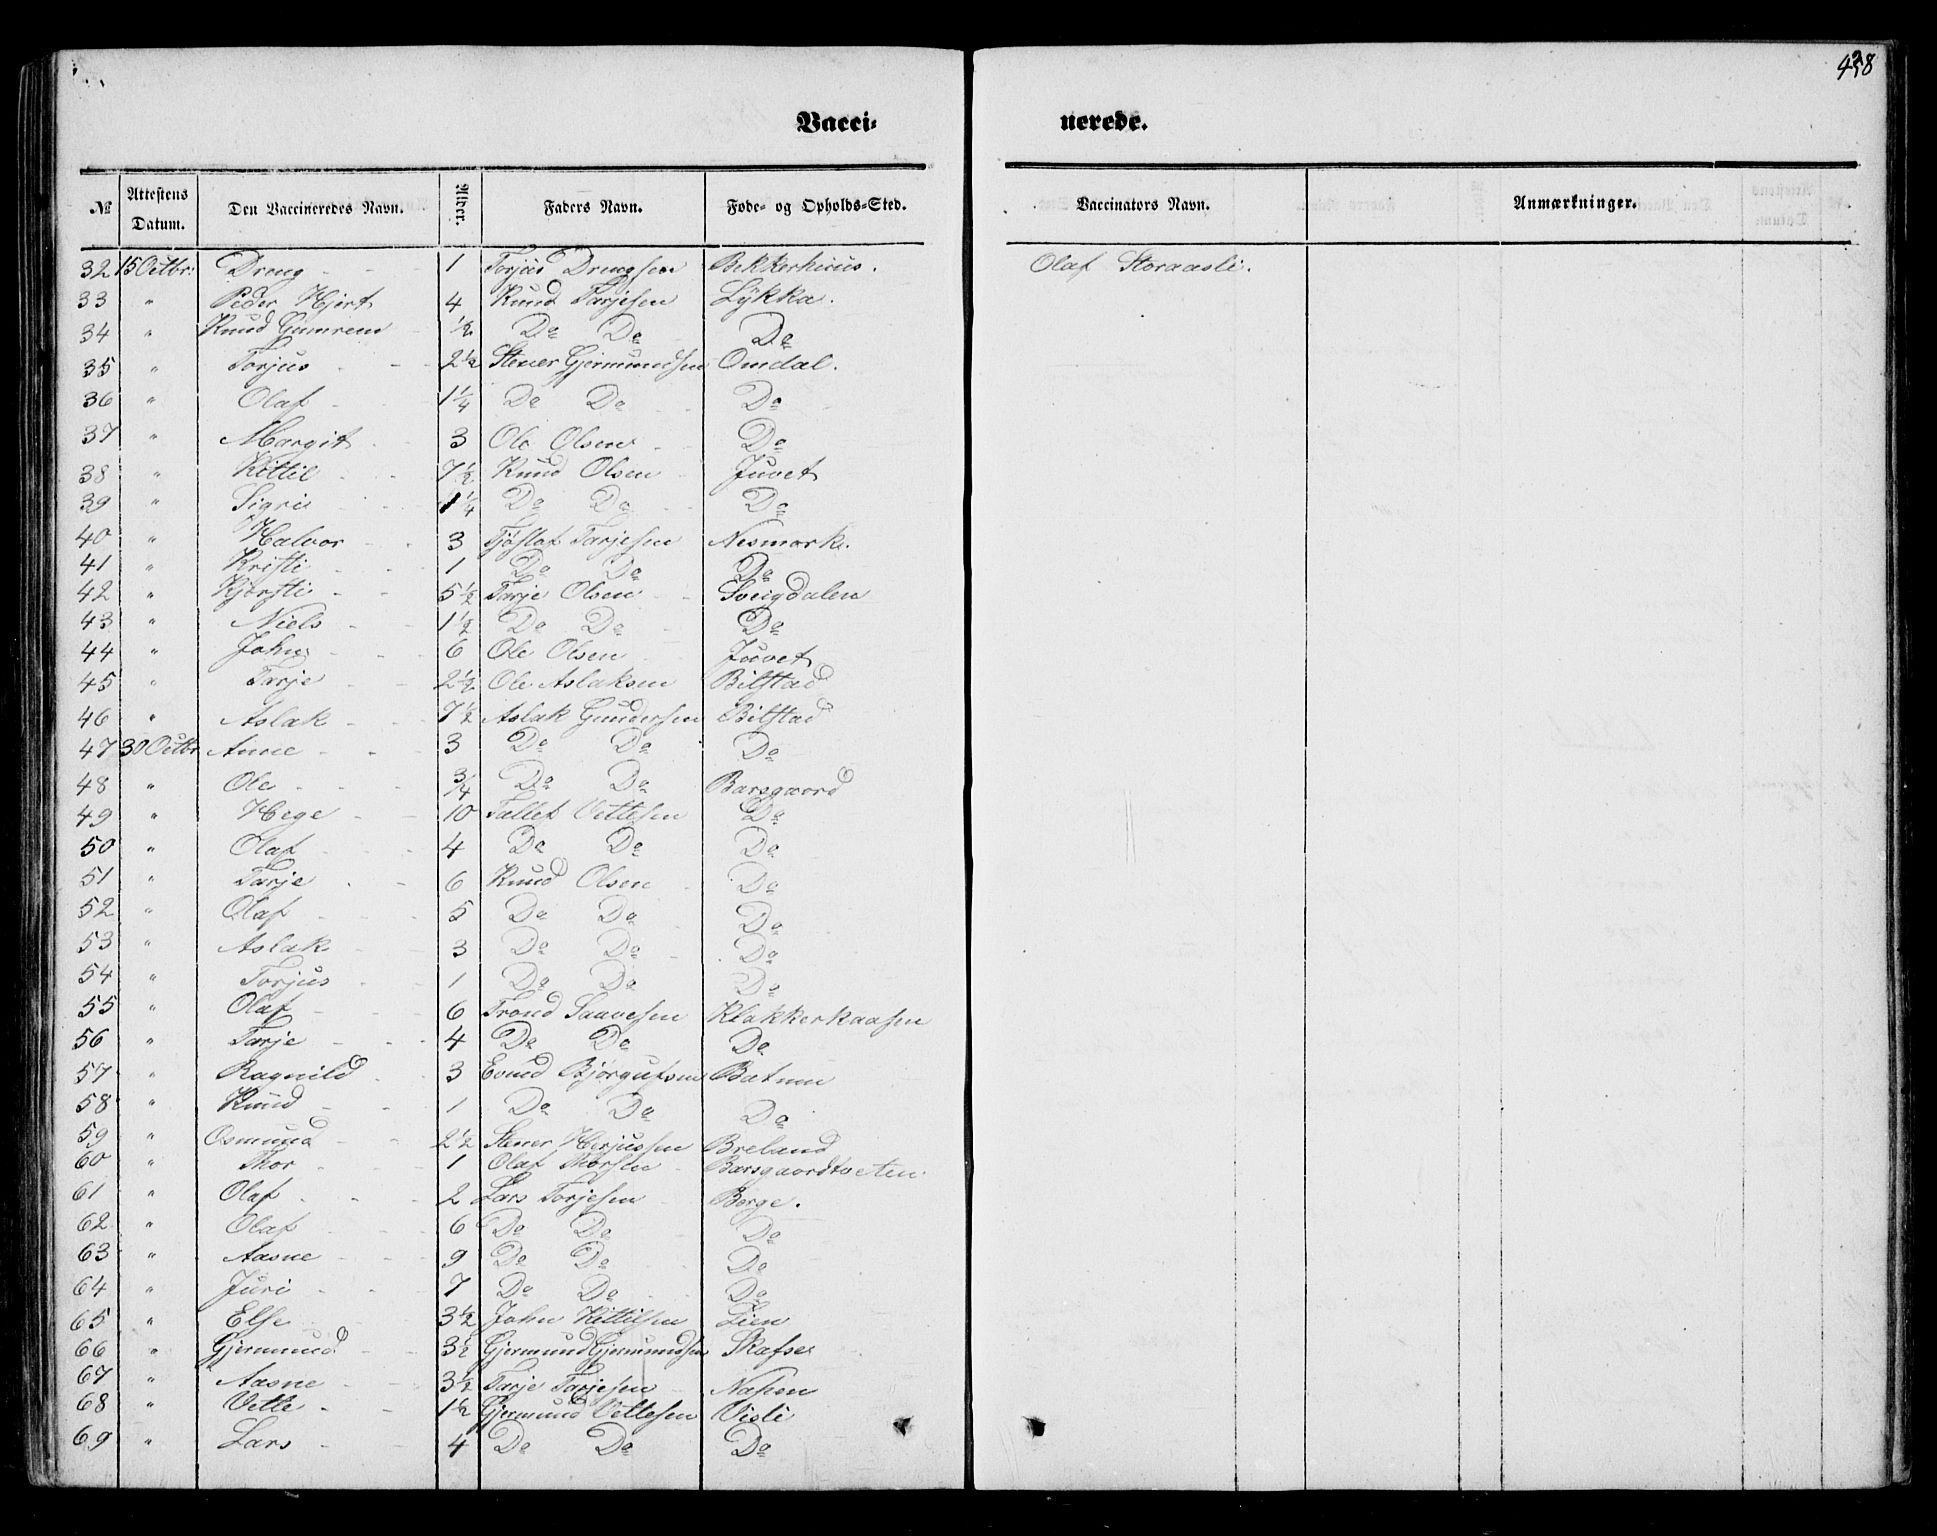 428
Vacci= nerede.
№ Attestens Datum. Den Vaccineredes Navn. Alder. Faders Navn. Føde- og Opholds-Sted. Vaccinators Navn. Anmærkninger.
32 15 Octbr: Dreng 1 Torjus Drengsen Bekkerhuus. Olaf Storaasli.
33 " Peder Hjort 4 Knud Tarjesen Lykka.
34 " Knud 1/2 Do Do Do
35 " Torjus 2 1/2 Stener Gjermundsen Omdal.
36 " Olaf 1 1/4 Do Do Do
37 " Margit 3 Ole Olsen Do
38 " Kittil 7 1/2 Knud Olsen Juvet
39 " Sigri 1 1/4 Do Do Do
40 " Halvor 3 Tjøstof Tarjesen Nesmark.
41 " Kristi 1 Do Do Do
42 " Kjersti 5 1/2 Tarje Olsen Svingdalen
43 " Niels 1 1/2 Do Do Do
44 " John 6 Ole Olsen Juvet
45 " Tarje 2 1/2 Ole Aslaksen Bilstad
46 " Aslak 7 1/2 Aslak Gundersen Bilstad
47 30 Octbr Anne 3 Do Do Do
48 " Ole 3/4 Do Do Barsgaard
49 " Hege 10 Tallef Vettesen Do
50 " Olaf 4 Do Do Do
51 " Tarje 6 Knud Olsen Do
52 " Olaf 5 Do Do Do
53 " Aslak 3 Do Do Do
54 " Torjus 1 Do Do Do
55 " Olaf 6 Trond Saavesen Klakkerkaasen
56 " Tarje 4 Do Do Do
57 " Ragnild 3 Evind Bjørgufsen Bætuen
58 " Knud 1 Do Do Do
59 " Osmund 2 1/2 Stener Herjussen Breland
60 " Thor 1 Olaf Thorsen Barsgaardtveten
61 " Olaf 2 Lars Torjesen Berge.
62 " Olaf 6 Do Do Do
63 " Aasne 9 Do Do Do
64 " Juri 7 Do Do Do
65 " Else 3 1/2 John Kittilsen Lien
66 " Gjermund 3 1/2 Gjermund Gjermundsen Skafse
67 " Aasne 3 1/2 Tarje Tarjesen Napen
68 " Vette 1 1/2 Gjermund Vettesen Visli
69 " Lars 4 Do Do Do